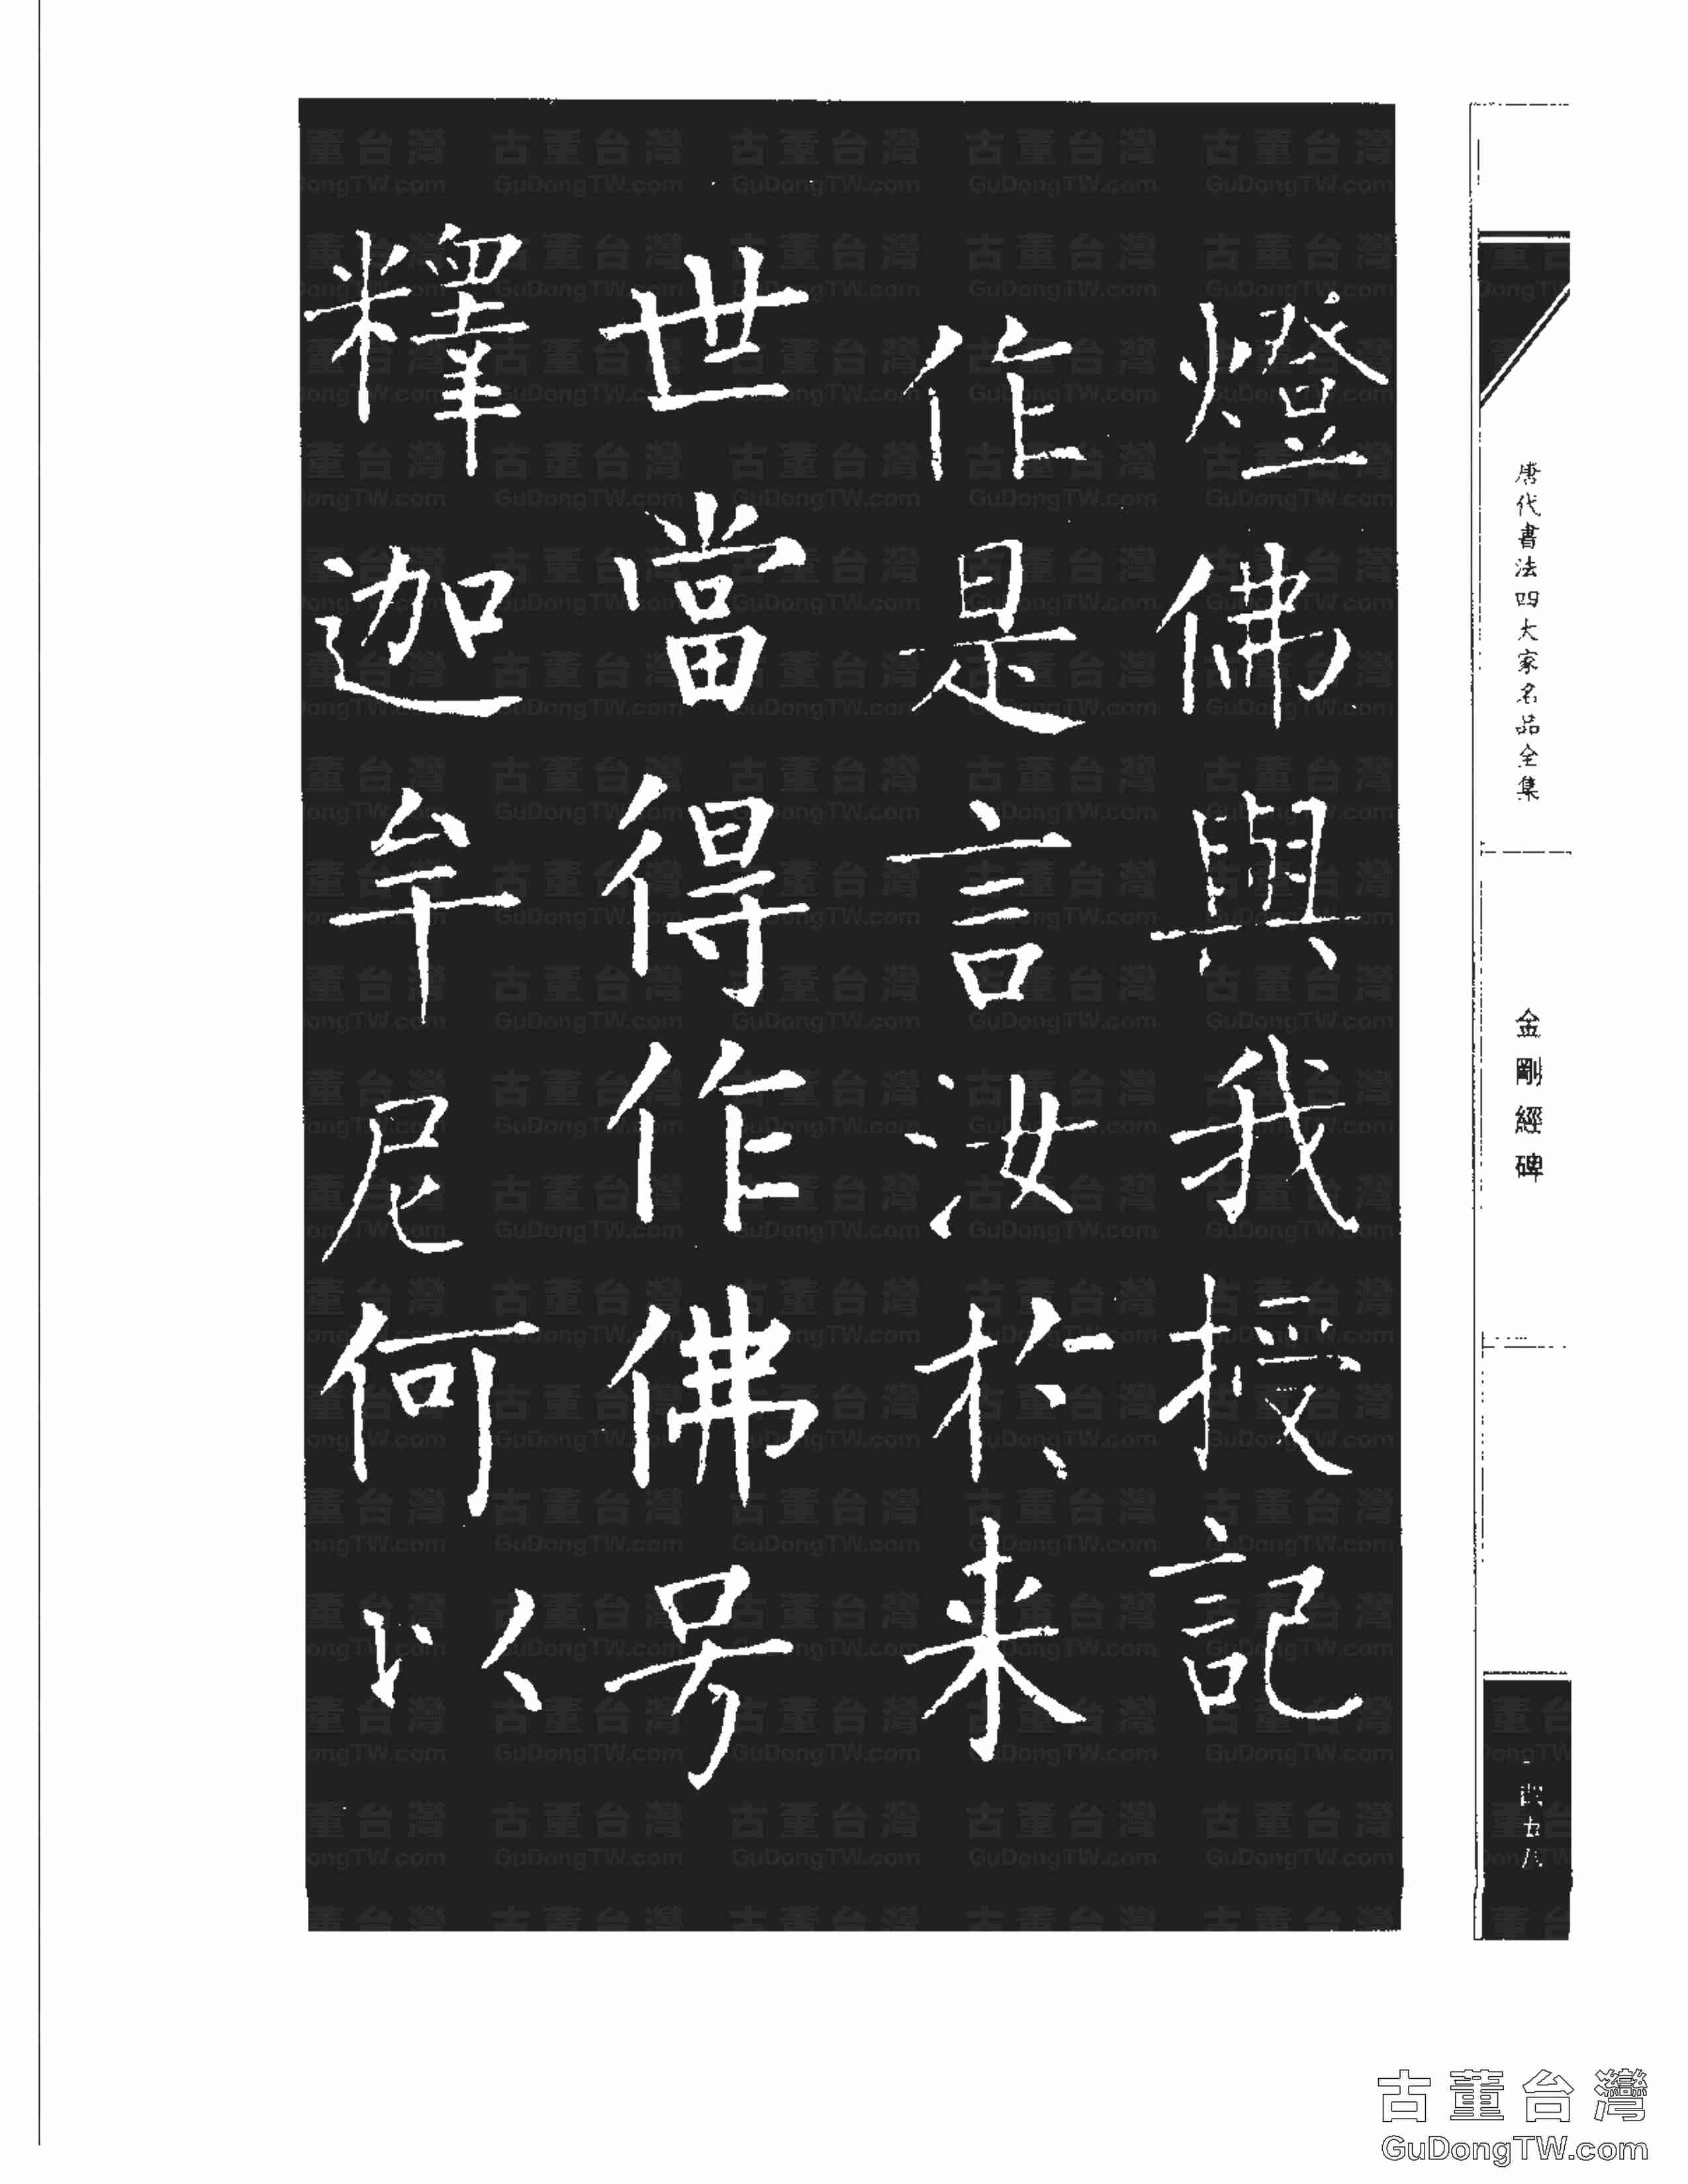 燈佛與我授記
作是言汝於来
世當得作佛号
釋迦牟尼何以
唐代書法四大家名品全集
金剛經碑
四五八
古董台灣
GuDongTW.com